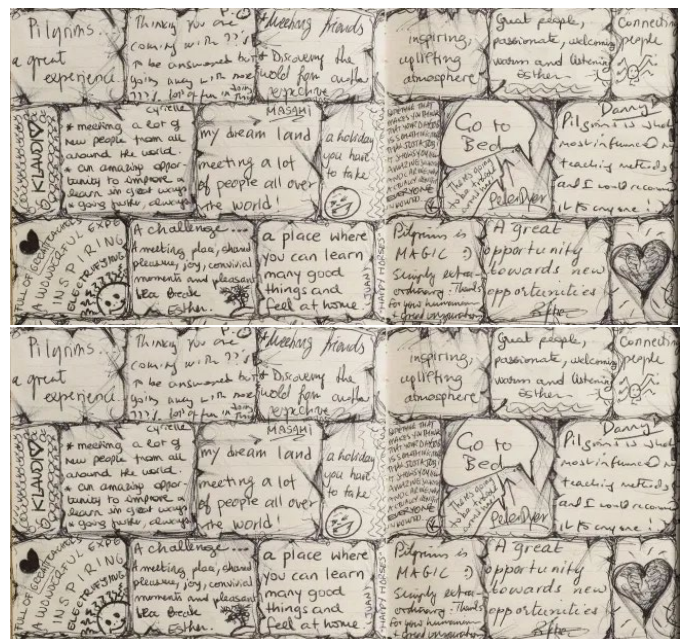 Pilgrims...
a great
experience.
Thinking you are
coming with ??'s
to be answered but
going away with more
???'s lot of fun in
Meeting friends
+ Discovering the
world from another
perspective
inspiring,
uplifting
atmosphere
Great people,
passionate, welcoming
warm and listening
Esther
Connecti
people
KLAUDI
Cyrielle
* meeting a lot of
new people from all
around the world.
* an amazing oppor-
tunity to improve
in great ways
* going further, always
MASAMI
my dream land
meeting a lot
of people all over
the world!
a holiday
you have
to take
Go to
Bed
Peter Dyer
Danny
Pilgrims is
most
teaching methods
and I would recom
it to anyone!
FULL OF GOOD TEACHERS
A WONDERFUL EXPE
INSPIRING
ELECTRIFYING
A challenge...
A meeting place, shared
pleasure, joy, convivial
moments and pleasant
tea break
Esther.
a place where
you can learn
many good
things and
feel at home
(JUAN)
HAPPY HORSES
Pilgrims is
MAGIC :)
Simply extra-
ordinary. Thanks
for your humanism
+ great inspiration
A great
opportunity
towards new
opportunities
Pilgrims...
a great
experience.
Thinking you are
coming with ??'s
to be answered but
going away with more
???'s lot of fun in
Meeting friends
+ Discovering the
world from another
perspective
inspiring,
uplifting
atmosphere
Great people,
passionate, welcoming
warm and listening
Esther
Connecti
people
KLAUDI
Cyrielle
* meeting a lot of
new people from all
around the world.
* an amazing oppor-
tunity to improve
in great ways
* going further, always
MASAMI
my dream land
meeting a lot
of people all over
the world!
a holiday
you have
to take
Go to
Bed
Peter Dyer
Danny
Pilgrims is
most
teaching methods
and I would recom
it to anyone!
FULL OF GOOD TEACHERS
A WONDERFUL EXPE
INSPIRING
ELECTRIFYING
A challenge...
A meeting place, shared
pleasure, joy, convivial
moments and pleasant
tea break
Esther.
a place where
you can learn
many good
things and
feel at home
(JUAN)
HAPPY HORSES
Pilgrims is
MAGIC :)
Simply extra-
ordinary. Thanks
for your humanism
+ great inspiration
A great
opportunity
towards new
opportunities